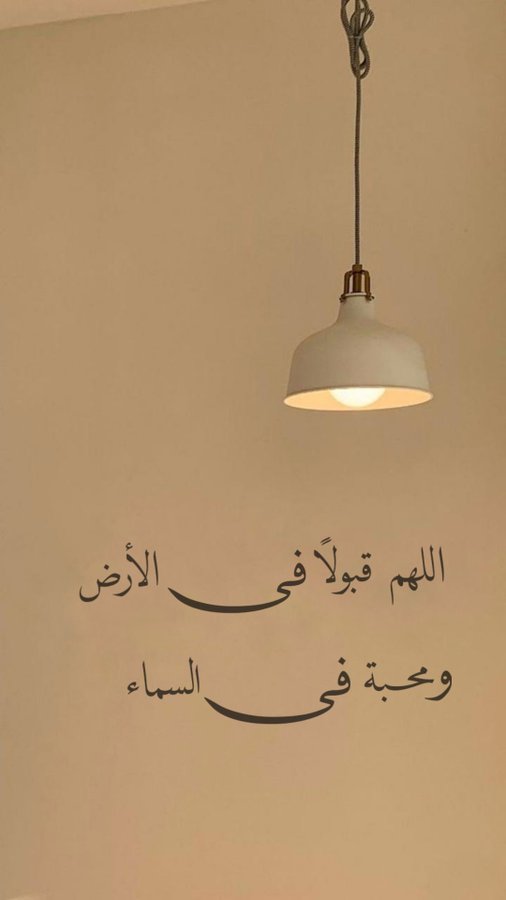 اللهم قبولاً فى الأرض
ومحبة فى السماء